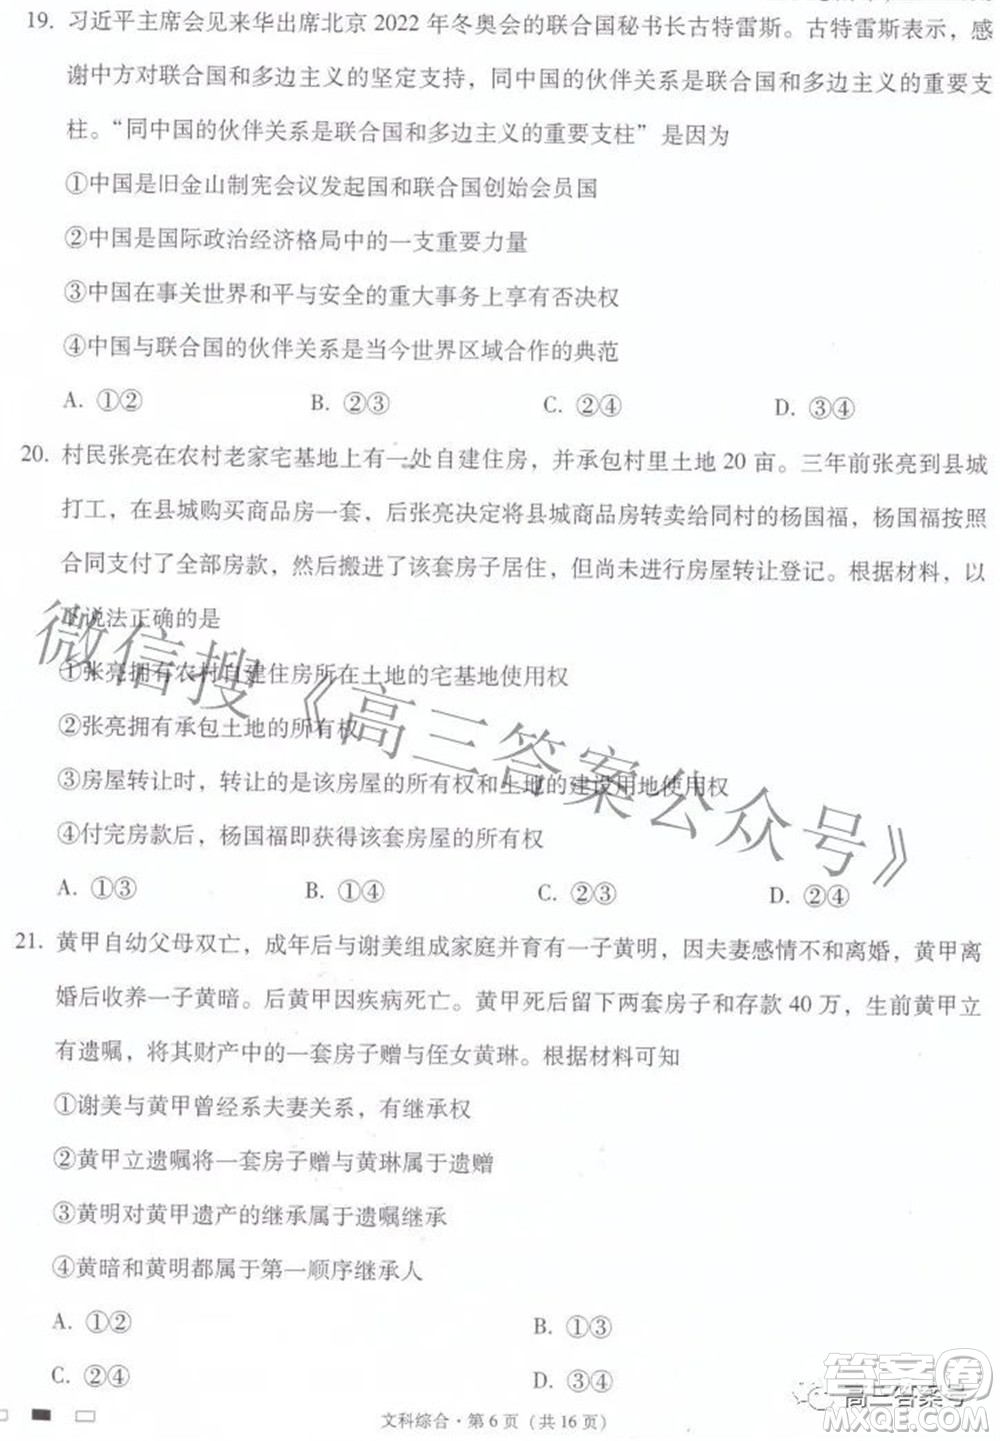 19. 习近平主席会见来华出席北京 2022 年冬奥会的联合国秘书长古特雷斯。古特雷斯表示，感
谢中方对联合国和多边主义的坚定支持，同中国的伙伴关系是联合国和多边主义的重要支
柱。“同中国的伙伴关系是联合国和多边主义的重要支柱”是因为
①中国是旧金山制宪会议发起国和联合国创始会员国
②中国是国际政治经济格局中的一支重要力量
③中国在事关世界和平与安全的重大事务上享有否决权
④中国与联合国的伙伴关系是当今世界区域合作的典范
A. ①② B. ②③ C. ②④ D. ③④
20. 村民张亮在农村老家宅基地上有一处自建住房，并承包村里土地 20 亩。三年前张亮到县城
打工，在县城购买商品房一套，后张亮决定将县城商品房转卖给同村的杨国福，杨国福按照
合同支付了全部房款，然后搬进了该套房子居住，但尚未进行房屋转让登记。根据材料，以
下说法正确的是
①张亮拥有农村自建住房所在土地的宅基地使用权
②张亮拥有承包土地的所有权
③房屋转让时，转让的是该房屋的所有权和土地的建设用地使用权
④付完房款后，杨国福即获得该套房屋的所有权
A. ①③ B. ①④ C. ②③ D. ②④
微信搜《高三答案公众号》
21. 黄甲自幼父母双亡，成年后与谢美组成家庭并育有一子黄明，因夫妻感情不和离婚，黄甲离
婚后收养一子黄暗。后黄甲因疾病死亡。黄甲死后留下两套房子和存款 40 万，生前黄甲立
有遗嘱，将其财产中的一套房子赠与侄女黄琳。根据材料可知
①谢美与黄甲曾经系夫妻关系，有继承权
②黄甲立遗嘱将一套房子赠与黄琳属于遗赠
③黄明对黄甲遗产的继承属于遗嘱继承
④黄暗和黄明都属于第一顺序继承人
A. ①② B. ①③
C. ②④ D. ③④
文科综合·第 6 页（共 16 页）
高三答案号
答案圈
MXQE.COM